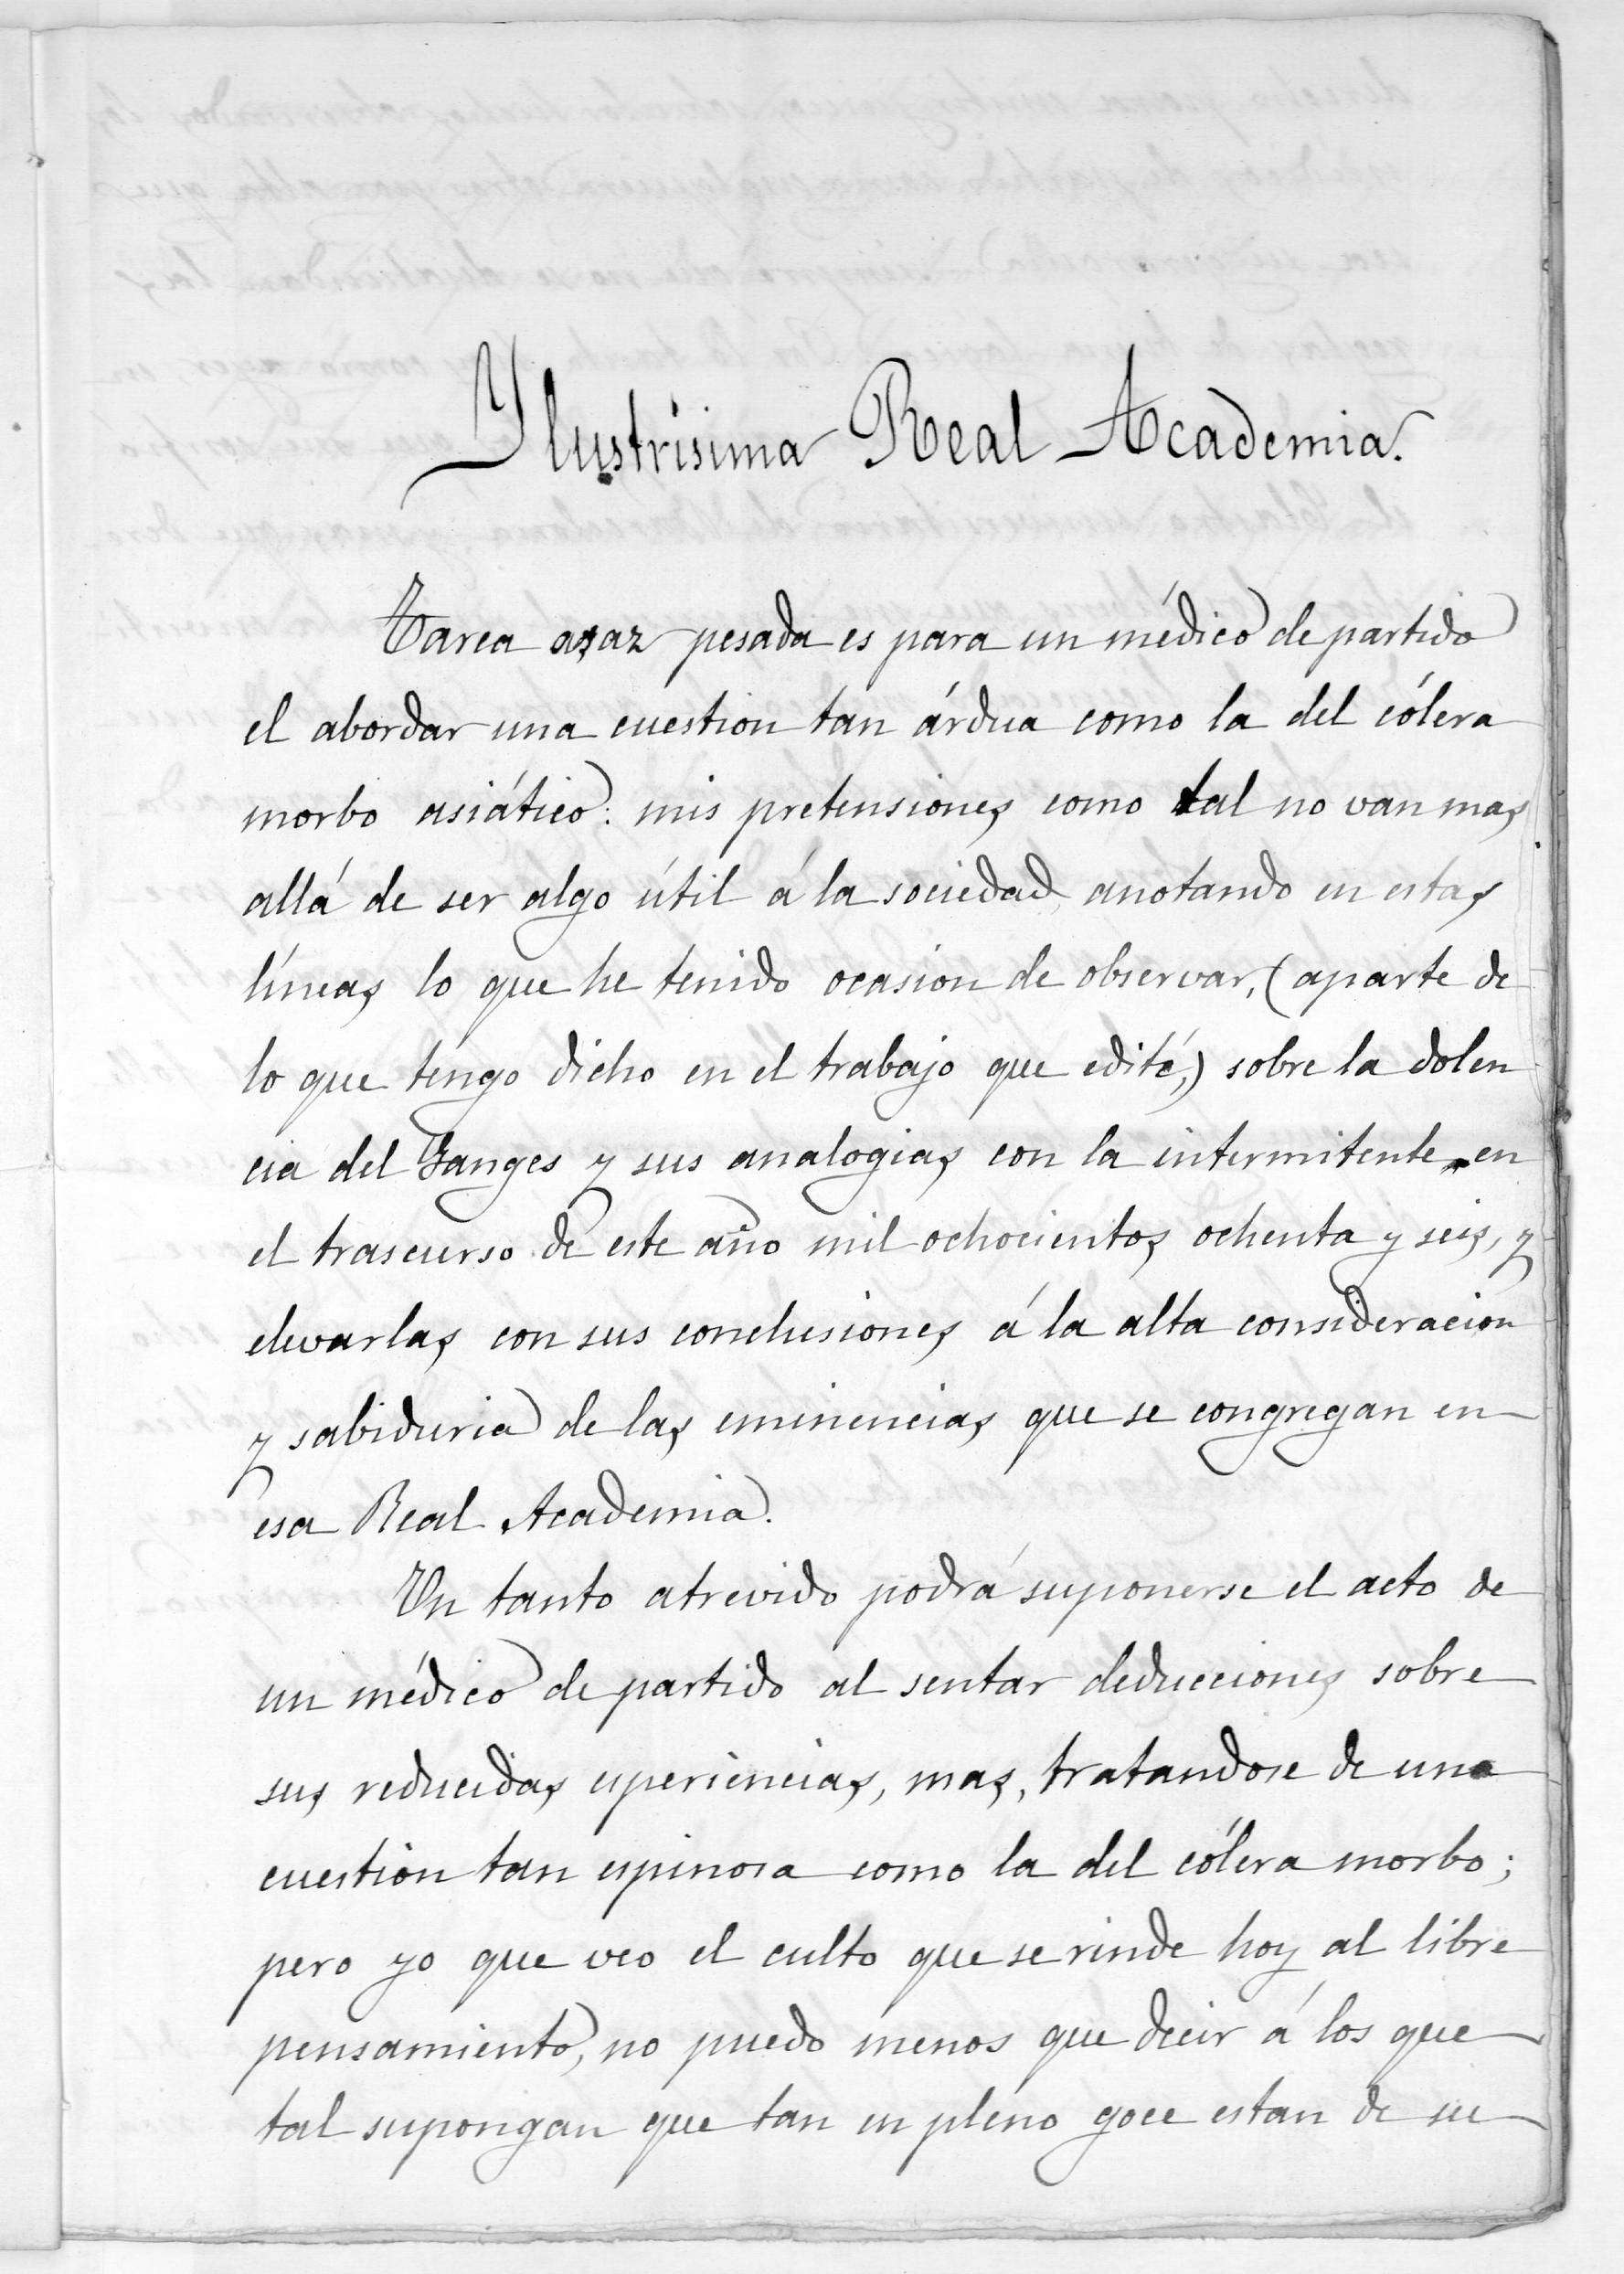 Ylustrísima Real Academia.
Tarea asaz pesada es para un médico de partido
el abordar una cuestion tan árdua como la del cólera
morbo asiático: mis pretensiones como tal no van mas
allá de ser algo útil á la sociedad, anotando en estas
líneas lo que he tenido ocasion de observar, (aparte de
lo que tengo dicho en el trabajo que edité,) sobre la dolen
cia del Ganges y sus analogias con la intermitente en
el trascurso de este año mil ochocientos ochenta y seis, y
elevarlas con sus conclusiones á la alta consideracion
y sabiduria de las eminencias que se congregan en
esa Real Academia.
Un tanto atrevido podrá suponerse el acto de
un médico de partido al sentar deducciones sobre
sus reducidas esperiencias, mas, tratandose de una
cuestion tan espinosa como la del cólera morbo;
pero yo que veo el culto que se rinde hoy al libre
pensamiento, no puedo menos que decir á los que
tal supongan que tan en pleno goce estan de su